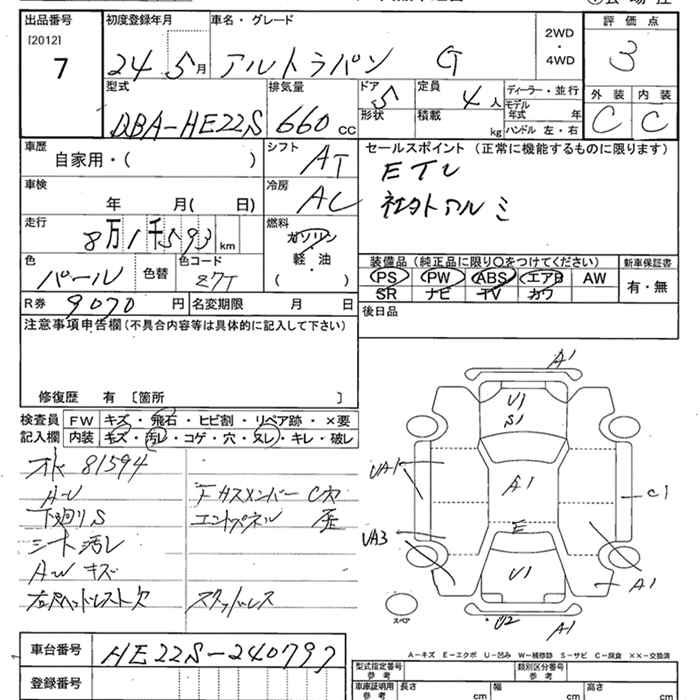 出品番号
[2012]
7
初度登録年月
24 5月
車名・グレード
アルトラパン G
2WD
・
4WD
評価点
3
型式
DBA-HE22S
排気量
660 cc
ドア
5
形状
定員
4人
積載 kg
ディーラー・並行
モデル
年式 年
ハンドル 左・右
外装 内装
C C
車歴
自家用・( )
シフト
AT
セールスポイント (正常に機能するものに限ります)
ETC
社外アルミ
車検
年 月( 日)
冷房
AC
走行
8万1千593 km
燃料
ガソリン
・
軽・油
( )
色
パール
色替
色コード
Z7T
装備品 (純正品に限り○をつけてください)
PS PW ABS エアB AW
SR ナビ TV カワ
新車保証書
有・無
R券 9070 円
名変期限 月 日
後日品
注意事項申告欄 (不具合内容等は具体的に記入して下さい)
修復歴 有 [箇所 ]
検査員
記入欄
FW キズ・飛石・ヒビ割・リペア跡・×要
内装 キズ・汚レ・コゲ・穴・スレ・キレ・破レ
オK 81594
A-U
下廻りS
シート汚レ
AW キズ
右Rヘッドレスト欠
Fガスメンバー C穴
エンドパネル
スタッドレス
A1
U1
S1
UA1
A1
C1
UA3
E
U1
A1
U2 A1
スペア
A-キズ E-エクボ U-凹み W-補修跡 S-サビ C-腐食 ××-交換済
車台番号
HE22S-240797
登録番号
型式指定番号
参考
類別区分番号
参考
車庫証明用
参考
長さ cm
幅 cm
高さ cm